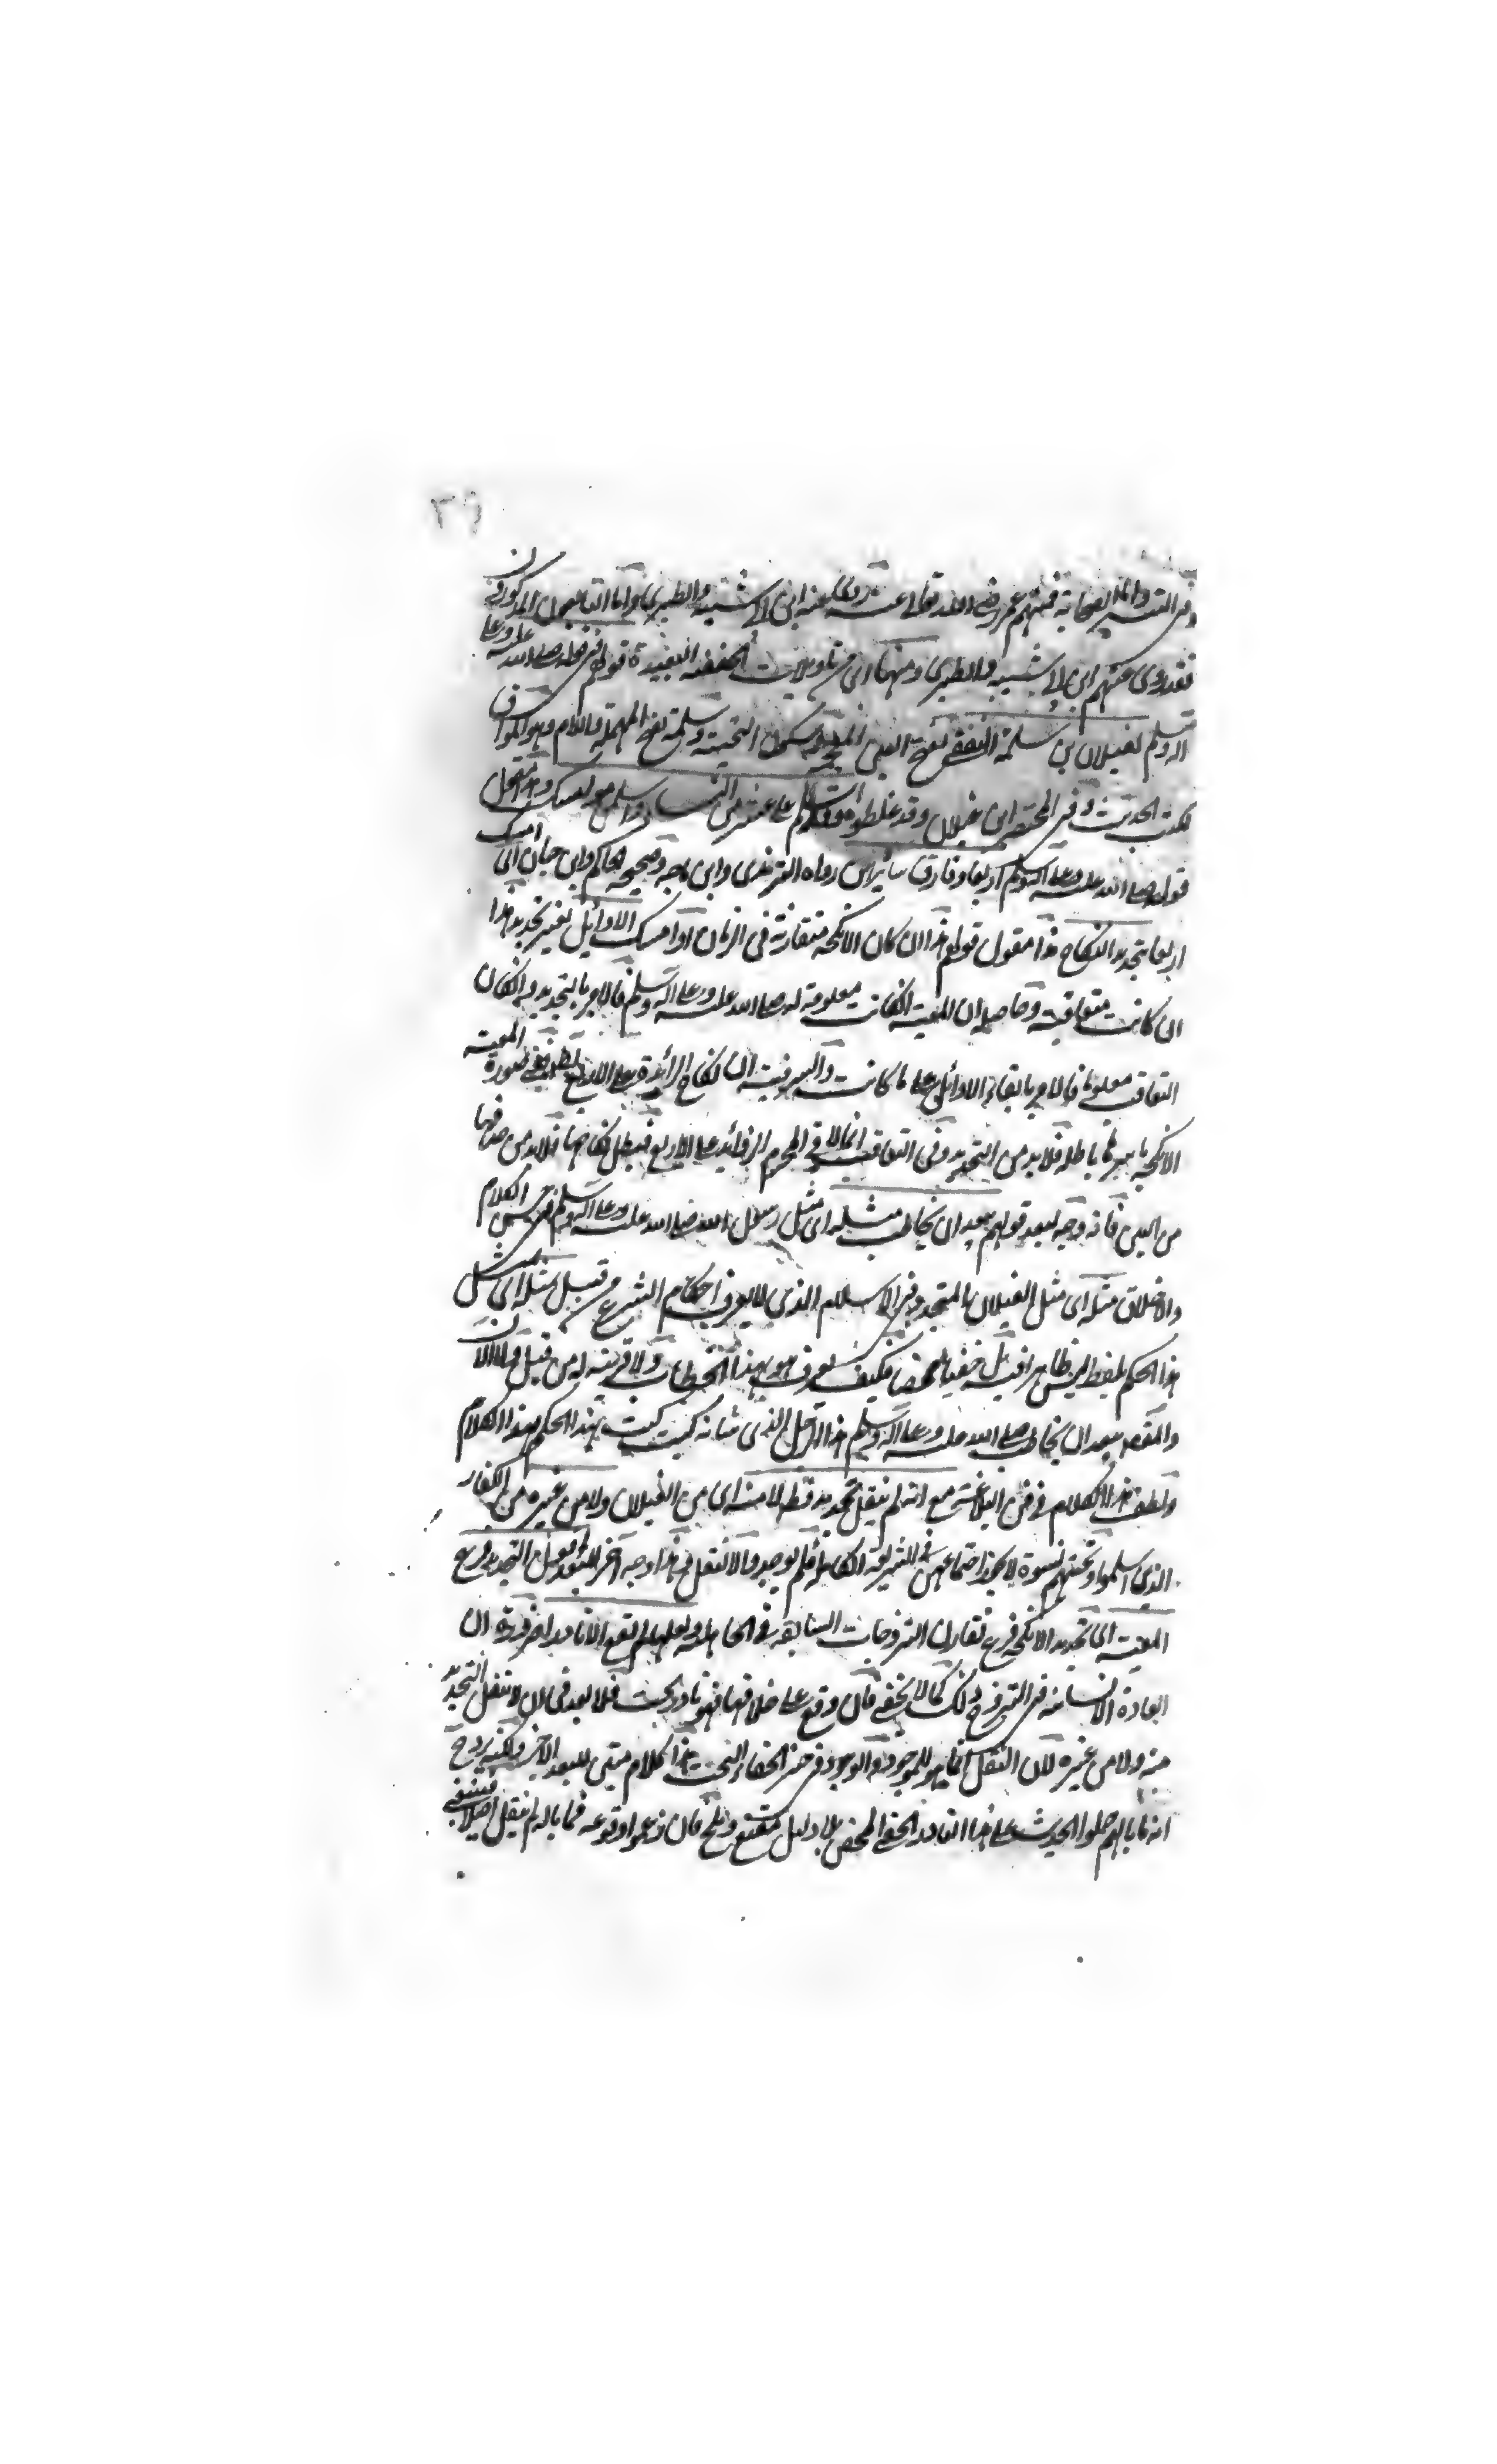 ٣٩
فى التيسير واما الصحابة فمنهم عمر رضى الله تعالى عنه روى عنه ابن ابى شيبة والطبرى واما التابعون المذكورون
فقد روى عنهم ابن ابى شيبة والطبرى ومنها اى من تاويلات الحنفية البعيدة قولهم فى قوله صلى الله عليه وعلى
اله وسلم لغيلان بن سلمة الثقفى بفتح الغين المعجمة وسكون التحتية وسلمة بفتح المهملة واللام وهو الموافق
لكتب الحديث وفى المختصر ابن غيلان وقد غلطوه وقد اسلم على عشر من النساء امسك وهذا مقول
قوله صلى الله عليه وعلى اله وسلم اربعا وفارق سائرهن رواه الترمذى وابن ماجه وصححه الحاكم وابن حبان اى امسك
اربعا بتجديد النكاح هذا مقول قولهم هذا ان كان الانكحة متقارنة فى الزمان او امسك الاوائل بغير تجديد هذا
ان كانت متعاقبة وحاصله ان المعية ان كانت معلومة له صلى الله عليه وعلى اله وسلم فالامر بالتجديد وان كان
التعاقب معلوما فالامر بابقاء الاوائل على ما كانت والسر فيه ان نكاح الزائدة على الاربع باطل ففى صورة المعية
الانكحة باسرها باطلة فلا بد من التجديد وفى التعاقب انما لاقى المحرم الزوائد على الاربع فبطل نكاحها فلا بد من
من البين فانه وجه لبعد قولهم يبعد ان يخاطب مثله اى مثل رسول الله صلى الله عليه وعلى اله وسلم فى حسن الكلام
والاخلاق مثله اى مثل الغيلان المتجدد فى الاسلام الذى لا يعرف احكام الشرع من قبل بمثله اى بمثل
هذا الحكم بلفظ ليس ظاهرا فيه بل خفيا محضا فكيف يعرف هو بهذا الخطاب ولا قرينة له من قبل ولا الان
والمقصود يبعد ان يخاطب صلى الله عليه وعلى اله وسلم هذا الرجل الذى شانه كيت كيت بهذا الحكم بهذا الكلام
ولطف هذا الكلام فى فن البلاغة مع انه لم ينقل تجديد قط لا منه اى من الغيلان ولا من غيره من الكفار
الذين اسلموا وتحتهم نسوة لا يجوز اجتماعهن فى الشريعة فلم يوجد والا لنقل وهذا وجه اخر للبعد التجديد فرع
المعية اى تجديد الانكحة فرع تقارن التزوجات السابقة فى الجاهلية ولعلها لم تقع الا نادرا ضرورة ان
العادة الانسانية فى التزوج ذلك كما لا يخفى فان وقع على خلافها فهو نادر بحت فلا بعد فى ان لا ينقل التجديد
منه ولا من غيره لان النقل انما هو للموجود والوجود فى حيز الخفاء البحت هذا الكلام مبنى للبعد الاخير ولكنه يروج
انه ما بالهم حملوا الحديث على هذا النادر الخفى المحض بلا دليل مقنع وثلج فان زعموا وقوعه فما باله لم ينقل اصلا